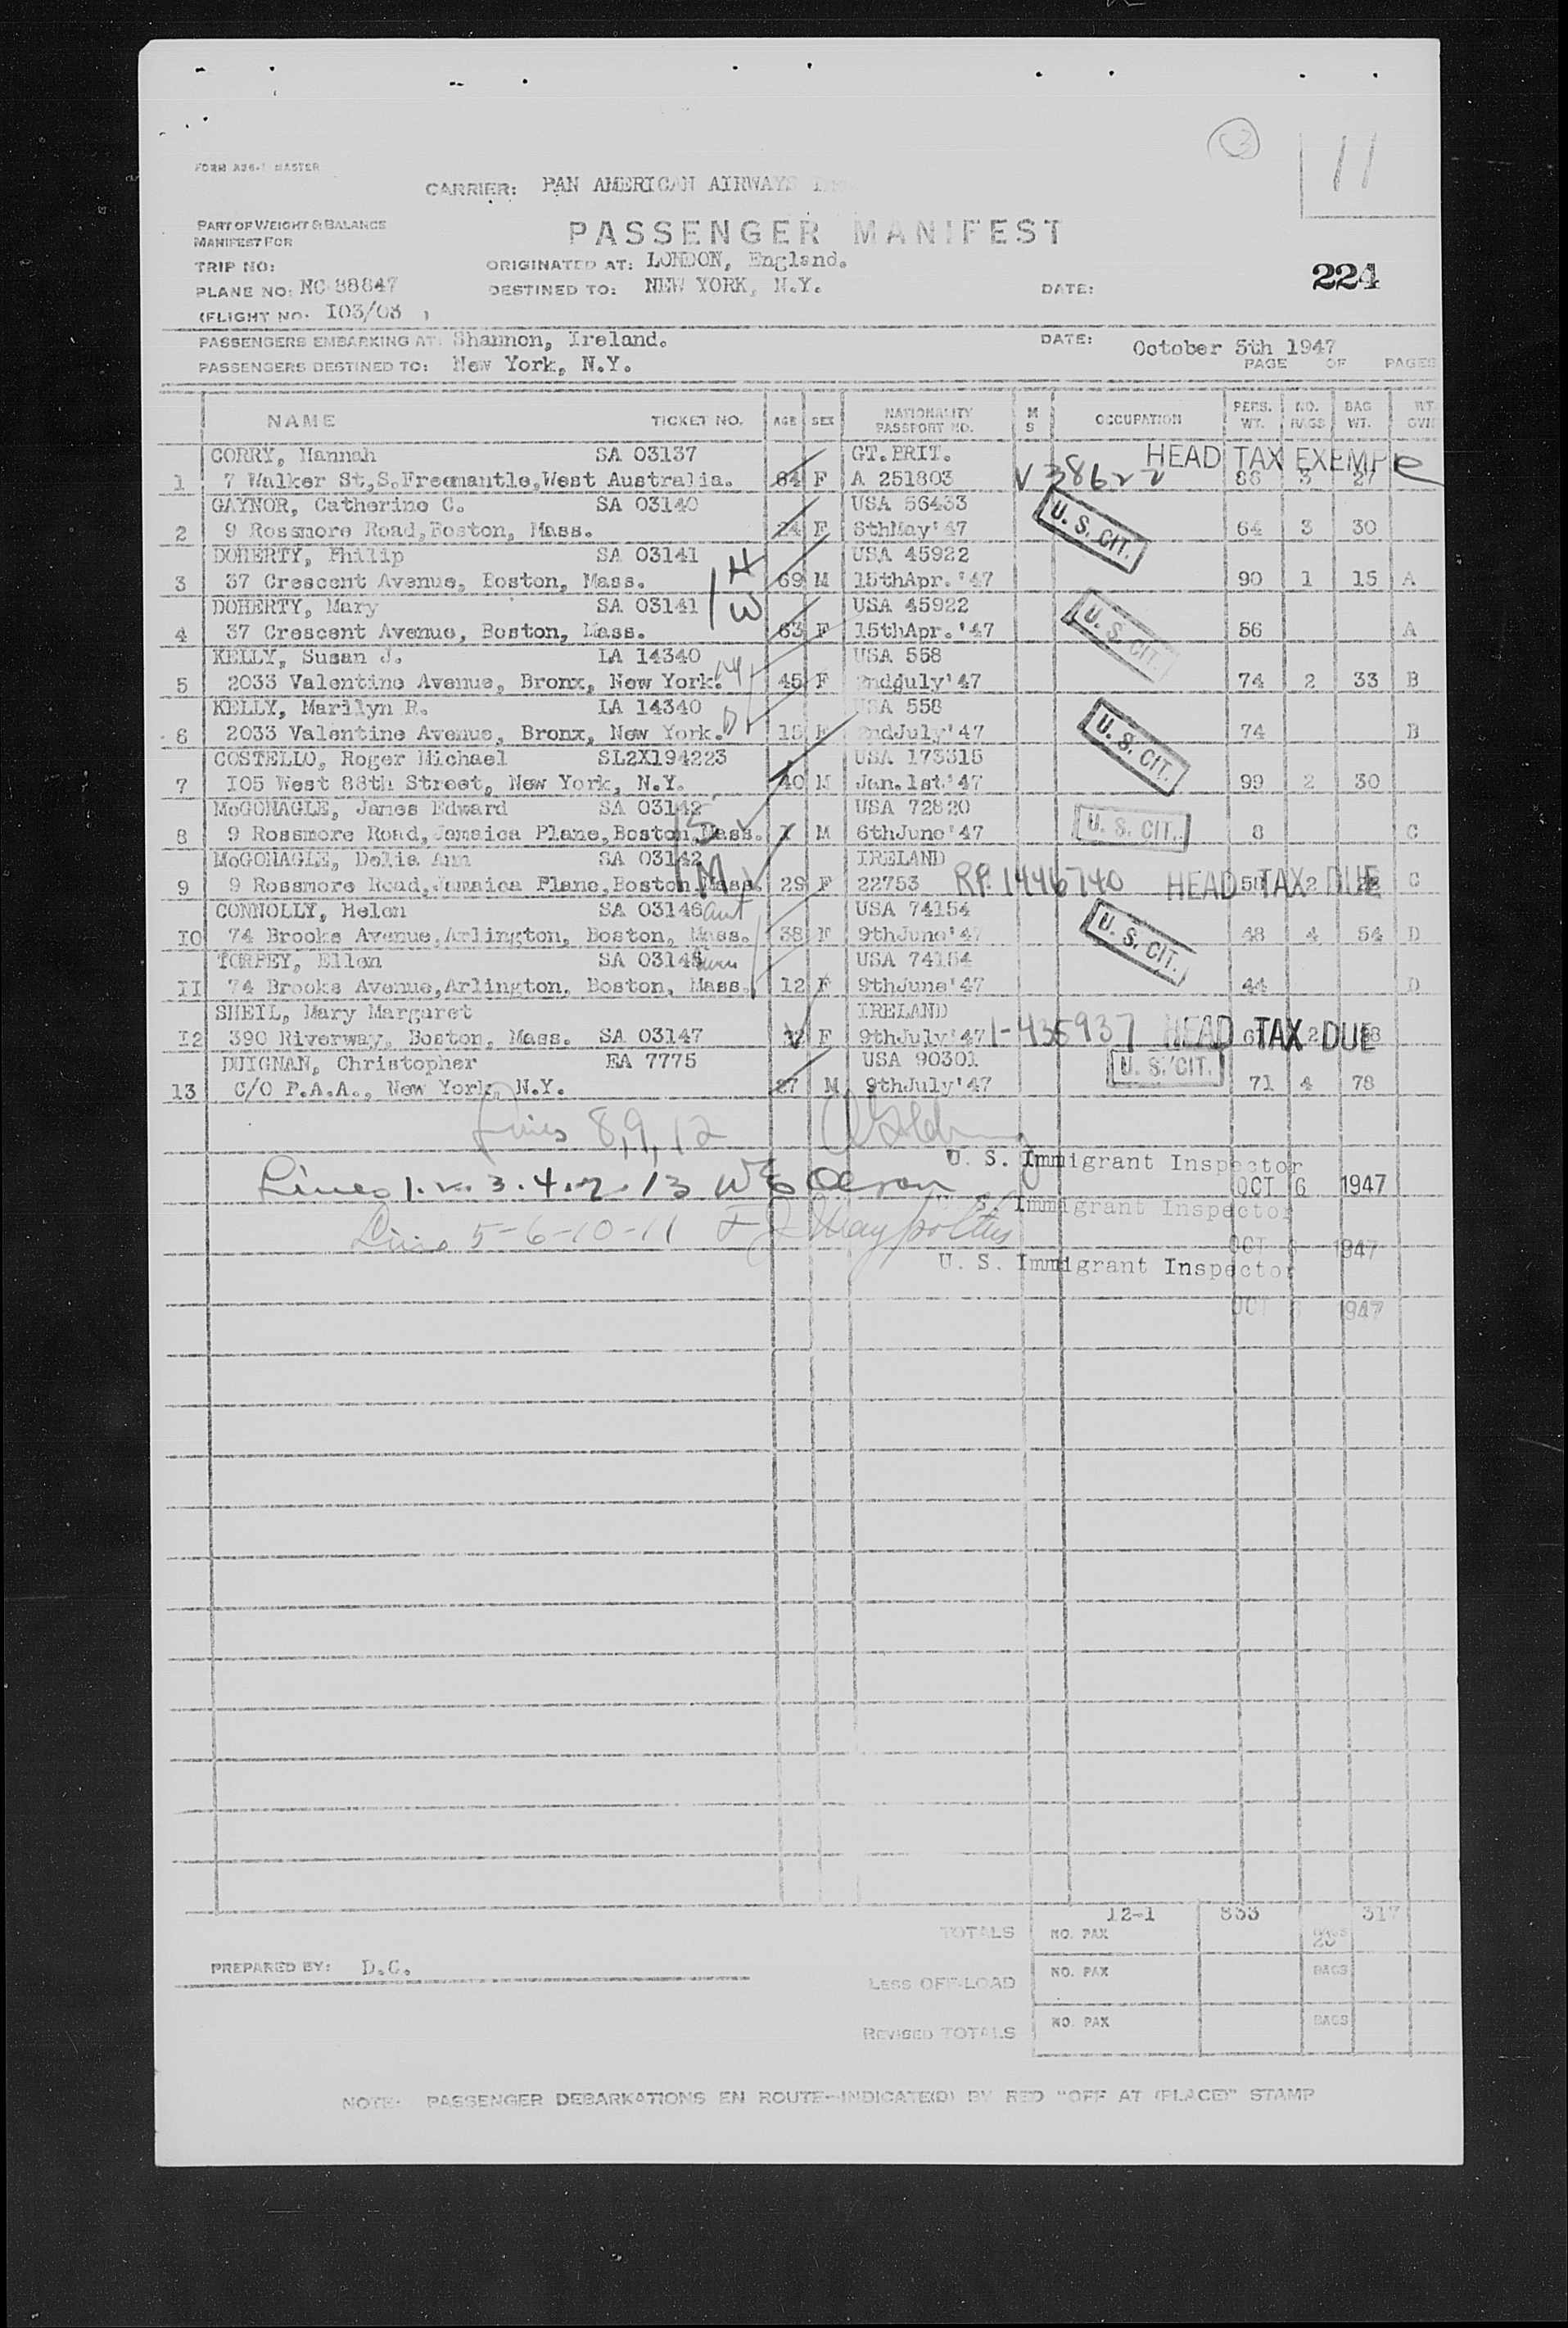 FORM A26-1 MASTER
CARRIER: PAN AMERICAN AIRWAYS
11
PART OF WEIGHT & BALANCE
MANIFEST FOR
PASSENGER MANIFEST
TRIP NO:
ORIGINATED AT: LONDON, England.
224
PLANE NO: NC 88847
DESTINED TO: NEW YORK, N.Y.
DATE:
(FLIGHT NO. I03/03 )
PASSENGERS EMBARKING AT: Shannon, Ireland.
DATE: October 5th 1947
PASSENGERS DESTINED TO: New York, N.Y.
PAGE OF PAGES
NAME TICKET NO. AGE SEX NATIONALITY PASSPORT NO. M S OCCUPATION PERS. WT. NO. BAGS BAG WT.
CORRY, Hannah SA 03137 GT. BRIT. HEAD TAX EXEMP
1 7 Walker St,S.Freemantle,West Australia. 64 F A 251803 V 38622 86 3 27
GAYNOR, Catherine C. SA 03140 USA 56433 U. S. CIT.
2 9 Rossmore Road,Boston, Mass. 24 F 6thMay'47 64 3 30
DOHERTY, Philip SA 03141 H USA 45922
3 37 Crescent Avenue, Boston, Mass. 69 M 15thApr.'47 90 1 15 A
DOHERTY, Mary SA 03141 W USA 45922 U. S. CIT.
4 37 Crescent Avenue, Boston, Mass. 63 F 15thApr.'47 56 A
KELLY, Susan J. IA 14340 USA 558
5 2033 Valentine Avenue, Bronx, New York. M 45 F 2ndJuly'47 74 2 33 B
KELLY, Marilyn R. IA 14340 USA 558 U. S. CIT.
6 2033 Valentine Avenue, Bronx, New York. D F 2ndJuly'47 74 B
COSTELLO, Roger Michael SL2X194223 USA 173315
7 I05 West 88th Street, New York, N.Y. 40 M Jan.1st'47 99 2 30
McGONAGLE, James Edward SA 03142 S USA 72820 U. S. CIT.
8 9 Rossmore Road,Jamaica Plane,Boston Mass. 1 M 6thJune'47 8 C
McGONAGLE, Delia Ann SA 03142 M IRELAND
9 9 Rossmore Road,Jamaica Plane,Boston Mass. 29 F 22753 RP 1446740 HEAD TAX DUE 2 C
CONNOLLY, Helen SA 03146 aunt USA 74154 U. S. CIT.
I0 74 Brooks Avenue,Arlington, Boston, Mass. 38 F 9thJune'47 48 4 54 D
TORPEY, Ellen SA 03146 USA 74154
II 74 Brooks Avenue,Arlington, Boston, Mass. 12 F 9thJune'47 44 D
SHEIL, Mary Margaret IRELAND
I2 390 Riverway, Boston, Mass. SA 03147 F 9thJuly'47 1-435937 HEAD TAX DUE 2
DUIGNAN, Christopher EA 7775 USA 90301 U. S. CIT.
13 C/O P.A.A., New York, N.Y. 27 M 9thJuly'47 71 4 78
Lines 8,9,12
U. S. Immigrant Inspector
Lines 1.2.3.4.7.13 W E Olerson OCT 6 1947
U. S. Immigrant Inspector
Lines 5-6-10-11
OCT 1947
U. S. Immigrant Inspector
OCT 1947
TOTALS 12-1 NO. PAX 833 BAGS 317
PREPARED BY: D.C.
LESS OFF-LOAD NO. PAX BAGS
REVISED TOTALS NO. PAX BAGS
NOTE: PASSENGER DEBARKATIONS EN ROUTE-INDICATE(D) BY RED "OFF AT (PLACE)" STAMP